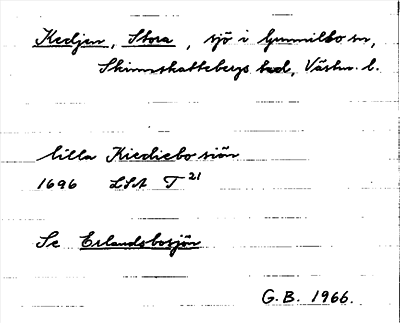 Kedjen, Stora, sjö i Gunnilbo sn,
Skinnskattebergs bgd, Västm. l.
lilla Kiediebo siön
1696 LSA T 21
Se Erlandsbosjön
G.B. 1966.